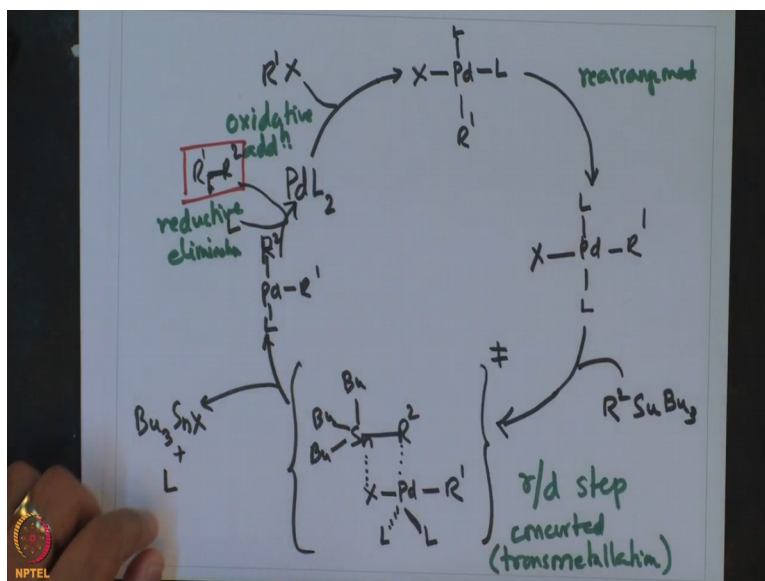 R¹X
L
X—Pd—L
R¹
rearrangemnt
oxidative
addⁿ
R¹—R²
PdL₂
reductive
eliminatn
L
R²
Pd—R¹
L
L
X—Pd—R¹
L
R²SnBu₃
Bu₃SnX
+
L
Bu
Bu
Bu
Sn—R²
X—Pd—R¹
L L
‡
r/d step
concerted
(transmetallation)
NPTEL